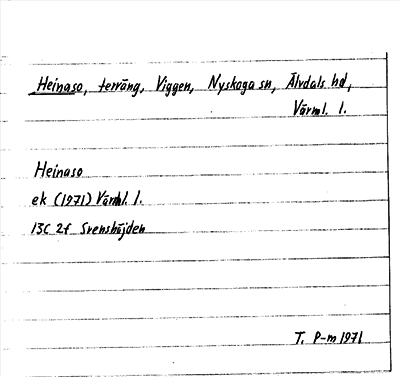 Heinaso, terräng, Viggen, Nyskoga sn, Älvdals hd,
Värml. l.
Heinaso
ek (1971) Värml. l.
13C 2f Svenshöjden
T. P-m 1971